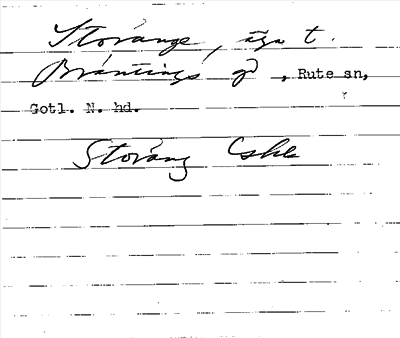 Storänge, äga t.
Bräntings gd, Rute sn,
Gotl. N. hd.
Storäng Eske